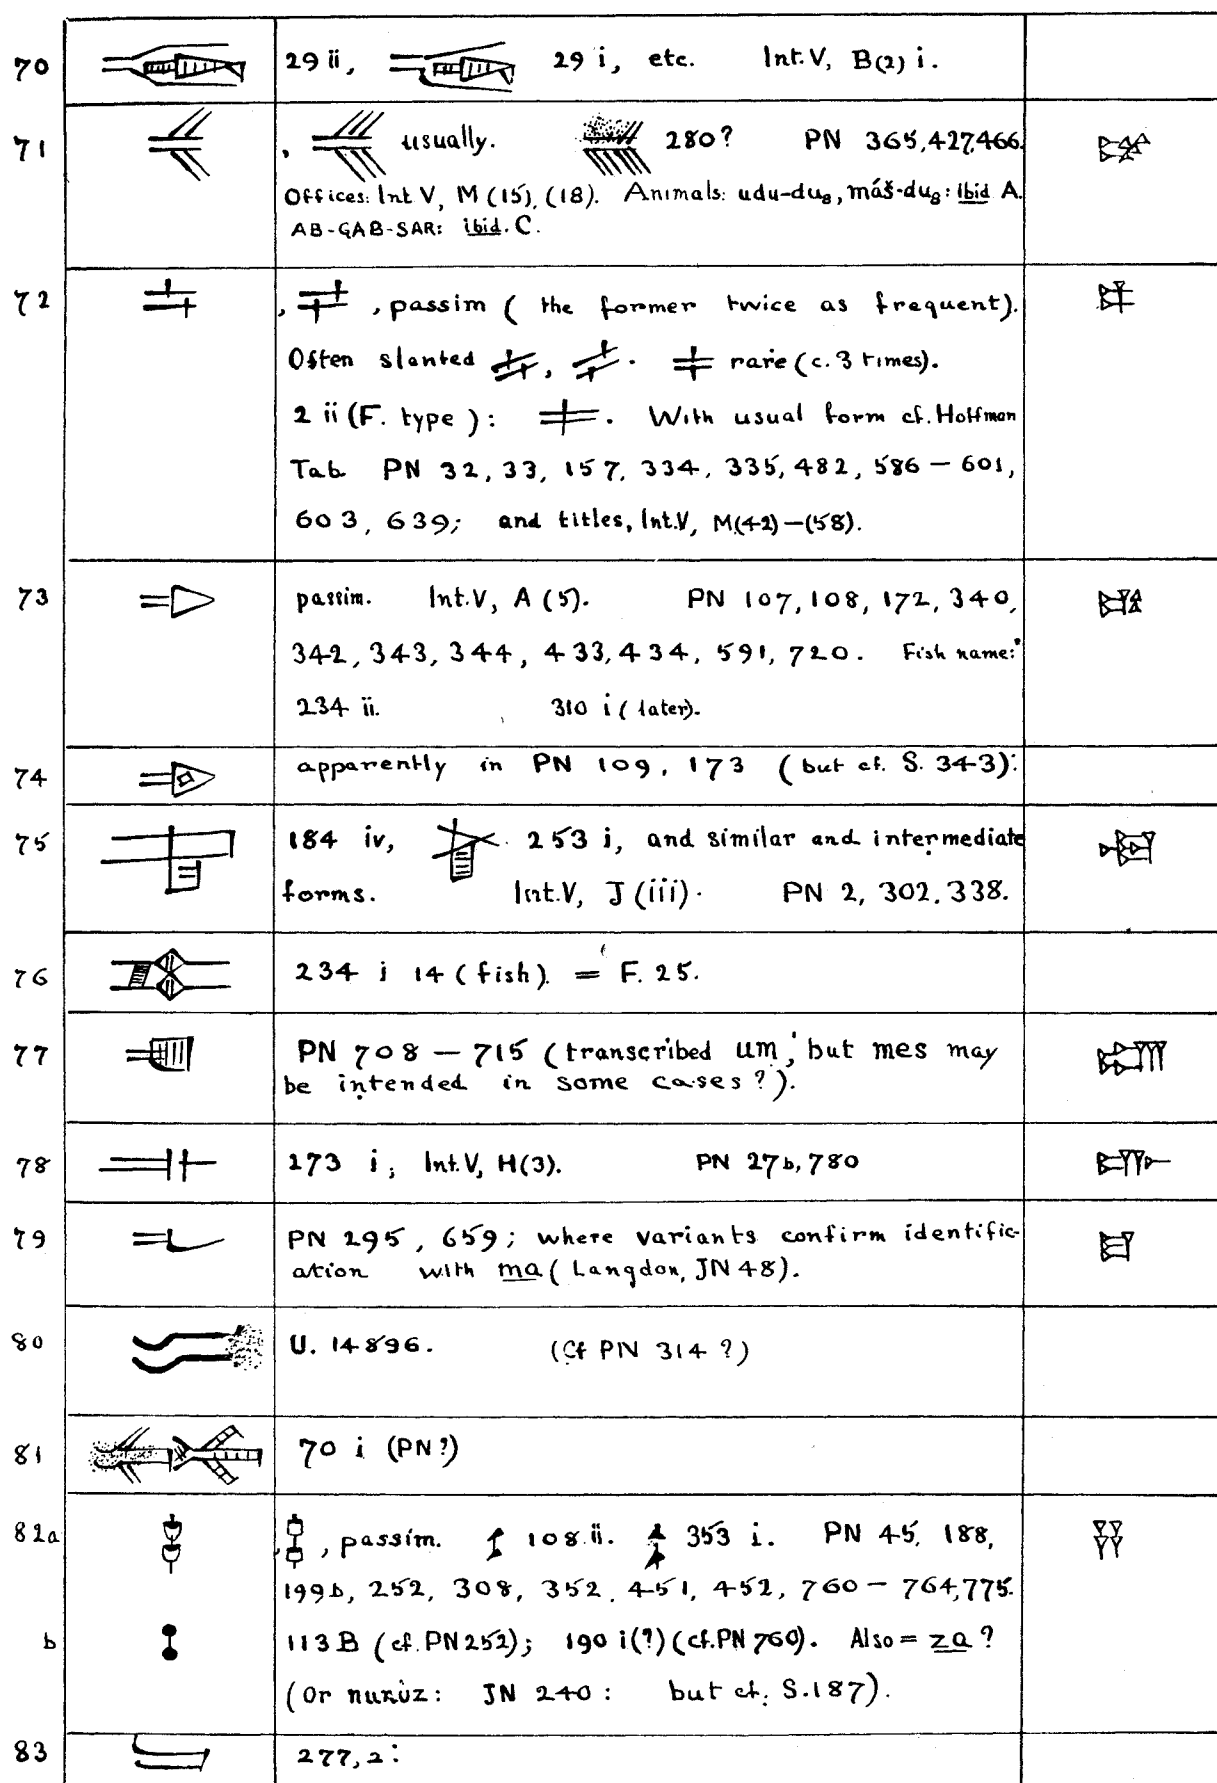 70 29 ii, 29 i, etc. Int. V, B(2) i.
71 , usually. 280? PN 365, 427, 466.
Offices: Int V, M (15), (18). Animals: udu-du₈, máš-du₈: ibid A.
AB-GAB-SAR: ibid. C.
72 , , passim ( the former twice as frequent).
Often slanted , . rare (c. 3 times).
2 ii (F. type ): . With usual form cf. Hoffman
Tab. PN 32, 33, 157, 334, 335, 482, 586 – 601,
603, 639; and titles, Int.V, M(42)–(58).
73 passim. Int.V, A (5). PN 107, 108, 172, 340,
342, 343, 344, 433, 434, 591, 720. Fish name:
234 ii. 310 i (later).
74 apparently in PN 109, 173 (but cf. S. 343).
75 184 iv, 253 i, and similar and intermediate
forms. Int.V, J (iii). PN 2, 302, 338.
76 234 i 14 (fish). = F. 25.
77 PN 708 – 715 (transcribed um, but mes may
be intended in some cases?).
78 273 i, Int.V, H(3). PN 27b, 780
79 PN 295, 659; where variants confirm identific-
ation with ma (Langdon, JN 48).
80 U. 14896. (Cf PN 314 ?)
81 70 i (PN?)
82a , , passim. 108 ii. 353 i. PN 45, 188,
199b, 252, 308, 352, 451, 452, 760 – 764, 775.
b 113 B (cf. PN 252); 190 i(?) (cf. PN 760). Also = za ?
(Or nunùz: JN 240: but cf. S. 187).
83 277, 2: